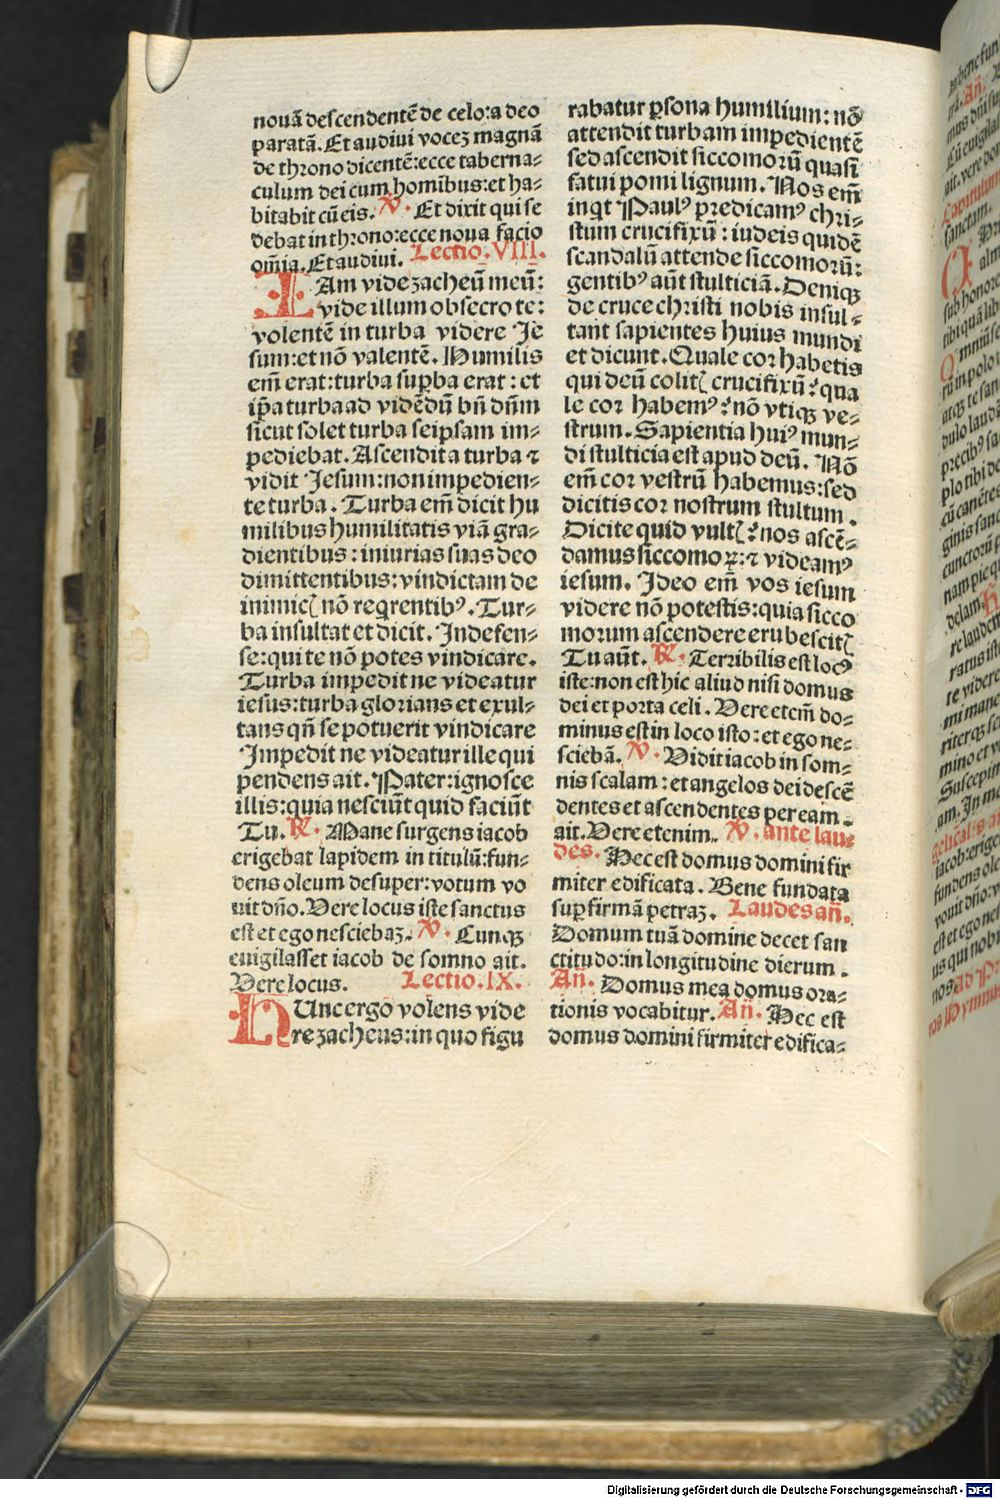 nouã descendentẽ de celo:a deo
paratã. Et audiui vocez magnã
de throno dicentẽ:ecce taberna⸗
culum dei cum homibus:et ha⸗
bitabit cũ eis. ℣. Et dixit qui se
debat in throno:ecce noua facio
om̃ia. Et audiui. Lectio. VIII.
IAm vide zacheũ meũ:
vide illum obsecro te:
volentẽ in turba videre Je
sum:et nõ valentẽ. Humilis
em̃ erat:turba supba erat: et
ip̃a turba ad vidẽdũ bñ dñm
sicut solet turba seipsam im⸗
pediebat. Ascendit a turba ⁊
vidit Jesum:non impedien⸗
te turba. Turba em̃ dicit hu
milibus humilitatis viã gra⸗
dientibus: iniurias suas deo
dimittentibus:vindictam de
inimicꝭ nõ reqrentibꝰ. Tur⸗
ba insultat et dicit. Indefen⸗
se:qui te nõ potes vindicare.
Turba impedit ne videatur
iesus:turba glorians et exul⸗
tans qñ se potuerit vindicare
Impedit ne videatur ille qui
pendens ait. Pater:ignosce
illis:quia nesciũt quid faciũt
Tu. ℟. Mane surgens iacob
erigebat lapidem in titulũ:fun⸗
dens oleum desuper:votum vo
uit dño. Vere locus iste sanctus
est et ego nesciebaz. ℣. Cunqꝫ
euigilasset iacob de somno ait.
Vere locus. Lectio. IX.
HUnc ergo volens vide
re zacheus:in quo figu
rabatur ꝑsona humilium: nõ
attendit turbam impedientẽ
sed ascendit siccomorũ quasi
fatui pomi lignum. Nos em̃
inqt Paulꝰ predicamꝰ chri⸗
stum crucifixũ: iudeis quidẽ
scandalũ attende siccomorũ:
gentibꝰ aũt stulticiã. Deniqꝫ
de cruce christi nobis insul⸗
tant sapientes huius mundi
et dicunt. Quale cor habetis
qui deũ colitꝭ crucifixũ? qua
le cor habemꝰ? nõ vtiqꝫ ve⸗
strum. Sapientia huiꝰ mun⸗
di stulticia est apud deũ. Nõ
em̃ cor vestrũ habemus:sed
dicitis cor nostrum stultum.
Dicite quid vultꝭ? nos ascẽ⸗
damus siccomoꝝ:⁊ videamꝰ
iesum. Ideo em̃ vos iesum
videre nõ potestis:quia sicco
morum ascendere erubescitꝭ
Tu aũt. ℟. Terribilis est locꝰ
iste:non est hic aliud nisi domus
dei et porta celi. Vere etem̃ do⸗
minus est in loco isto: et ego ne⸗
sciebã. ℣. Vidit iacob in som⸗
nis scalam: et angelos dei descẽ
dentes et ascendentes per eam.
ait. Vere etenim. ℣. ante lau⸗
des. Hec est domus domini fir
miter edificata. Bene fundata
suꝑ firmã petraz. Laudes añ.
Domum tuã domine decet san
ctitudo:in longitudine dierum.
Añ. Domus mea domus ora⸗
tionis vocabitur. Añ. Hec est
domus domini firmiter edifica⸗
Digitalisierung gefördert durch die Deutsche Forschungsgemeinschaft - DFG